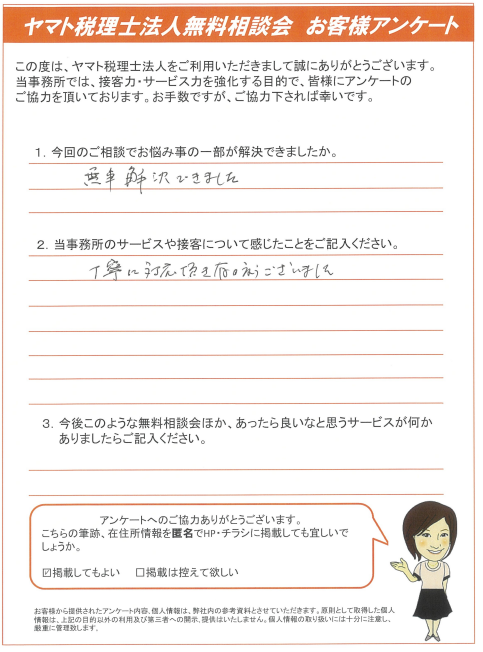 ヤマト税理士法人無料相談会 お客様アンケート
この度は、ヤマト税理士法人をご利用いただきまして誠にありがとうございます。
当事務所では、接客力・サービス力を強化する目的で、皆様にアンケートの
ご協力を頂いております。お手数ですが、ご協力下されば幸いです。
1．今回のご相談でお悩み事の一部が解決できましたか。
無事解決できました
2．当事務所のサービスや接客について感じたことをご記入ください。
丁寧に対応頂き有り難うございました
3．今後このような無料相談会ほか、あったら良いなと思うサービスが何か
ありましたらご記入ください。
アンケートへのご協力ありがとうございます。
こちらの筆跡、在住所情報を匿名でHP・チラシに掲載しても宜しいで
しょうか。
☑掲載してもよい ☐掲載は控えて欲しい
お客様から提供されたアンケート内容、個人情報は、弊社内の参考資料とさせていただきます。原則として取得した個人
情報は、上記の目的以外の利用及び第三者への開示、提供はいたしません。個人情報の取り扱いには十分に注意し、
厳重に管理致します。